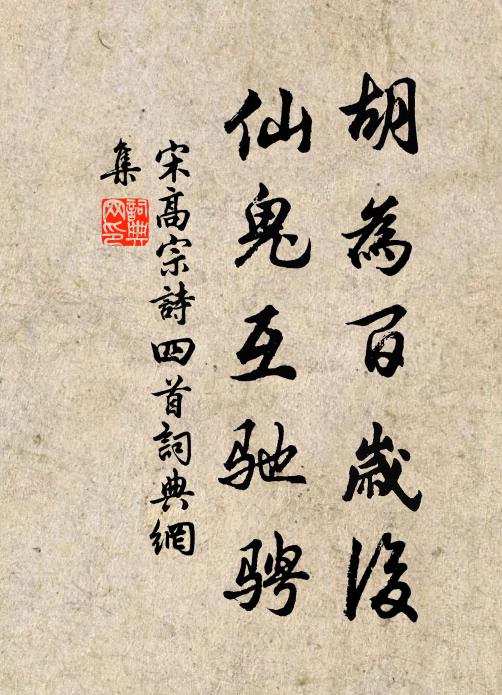 胡為百歲後
仙鬼互驰骋
宋高宗詩四首詞典網
集
詞典網印